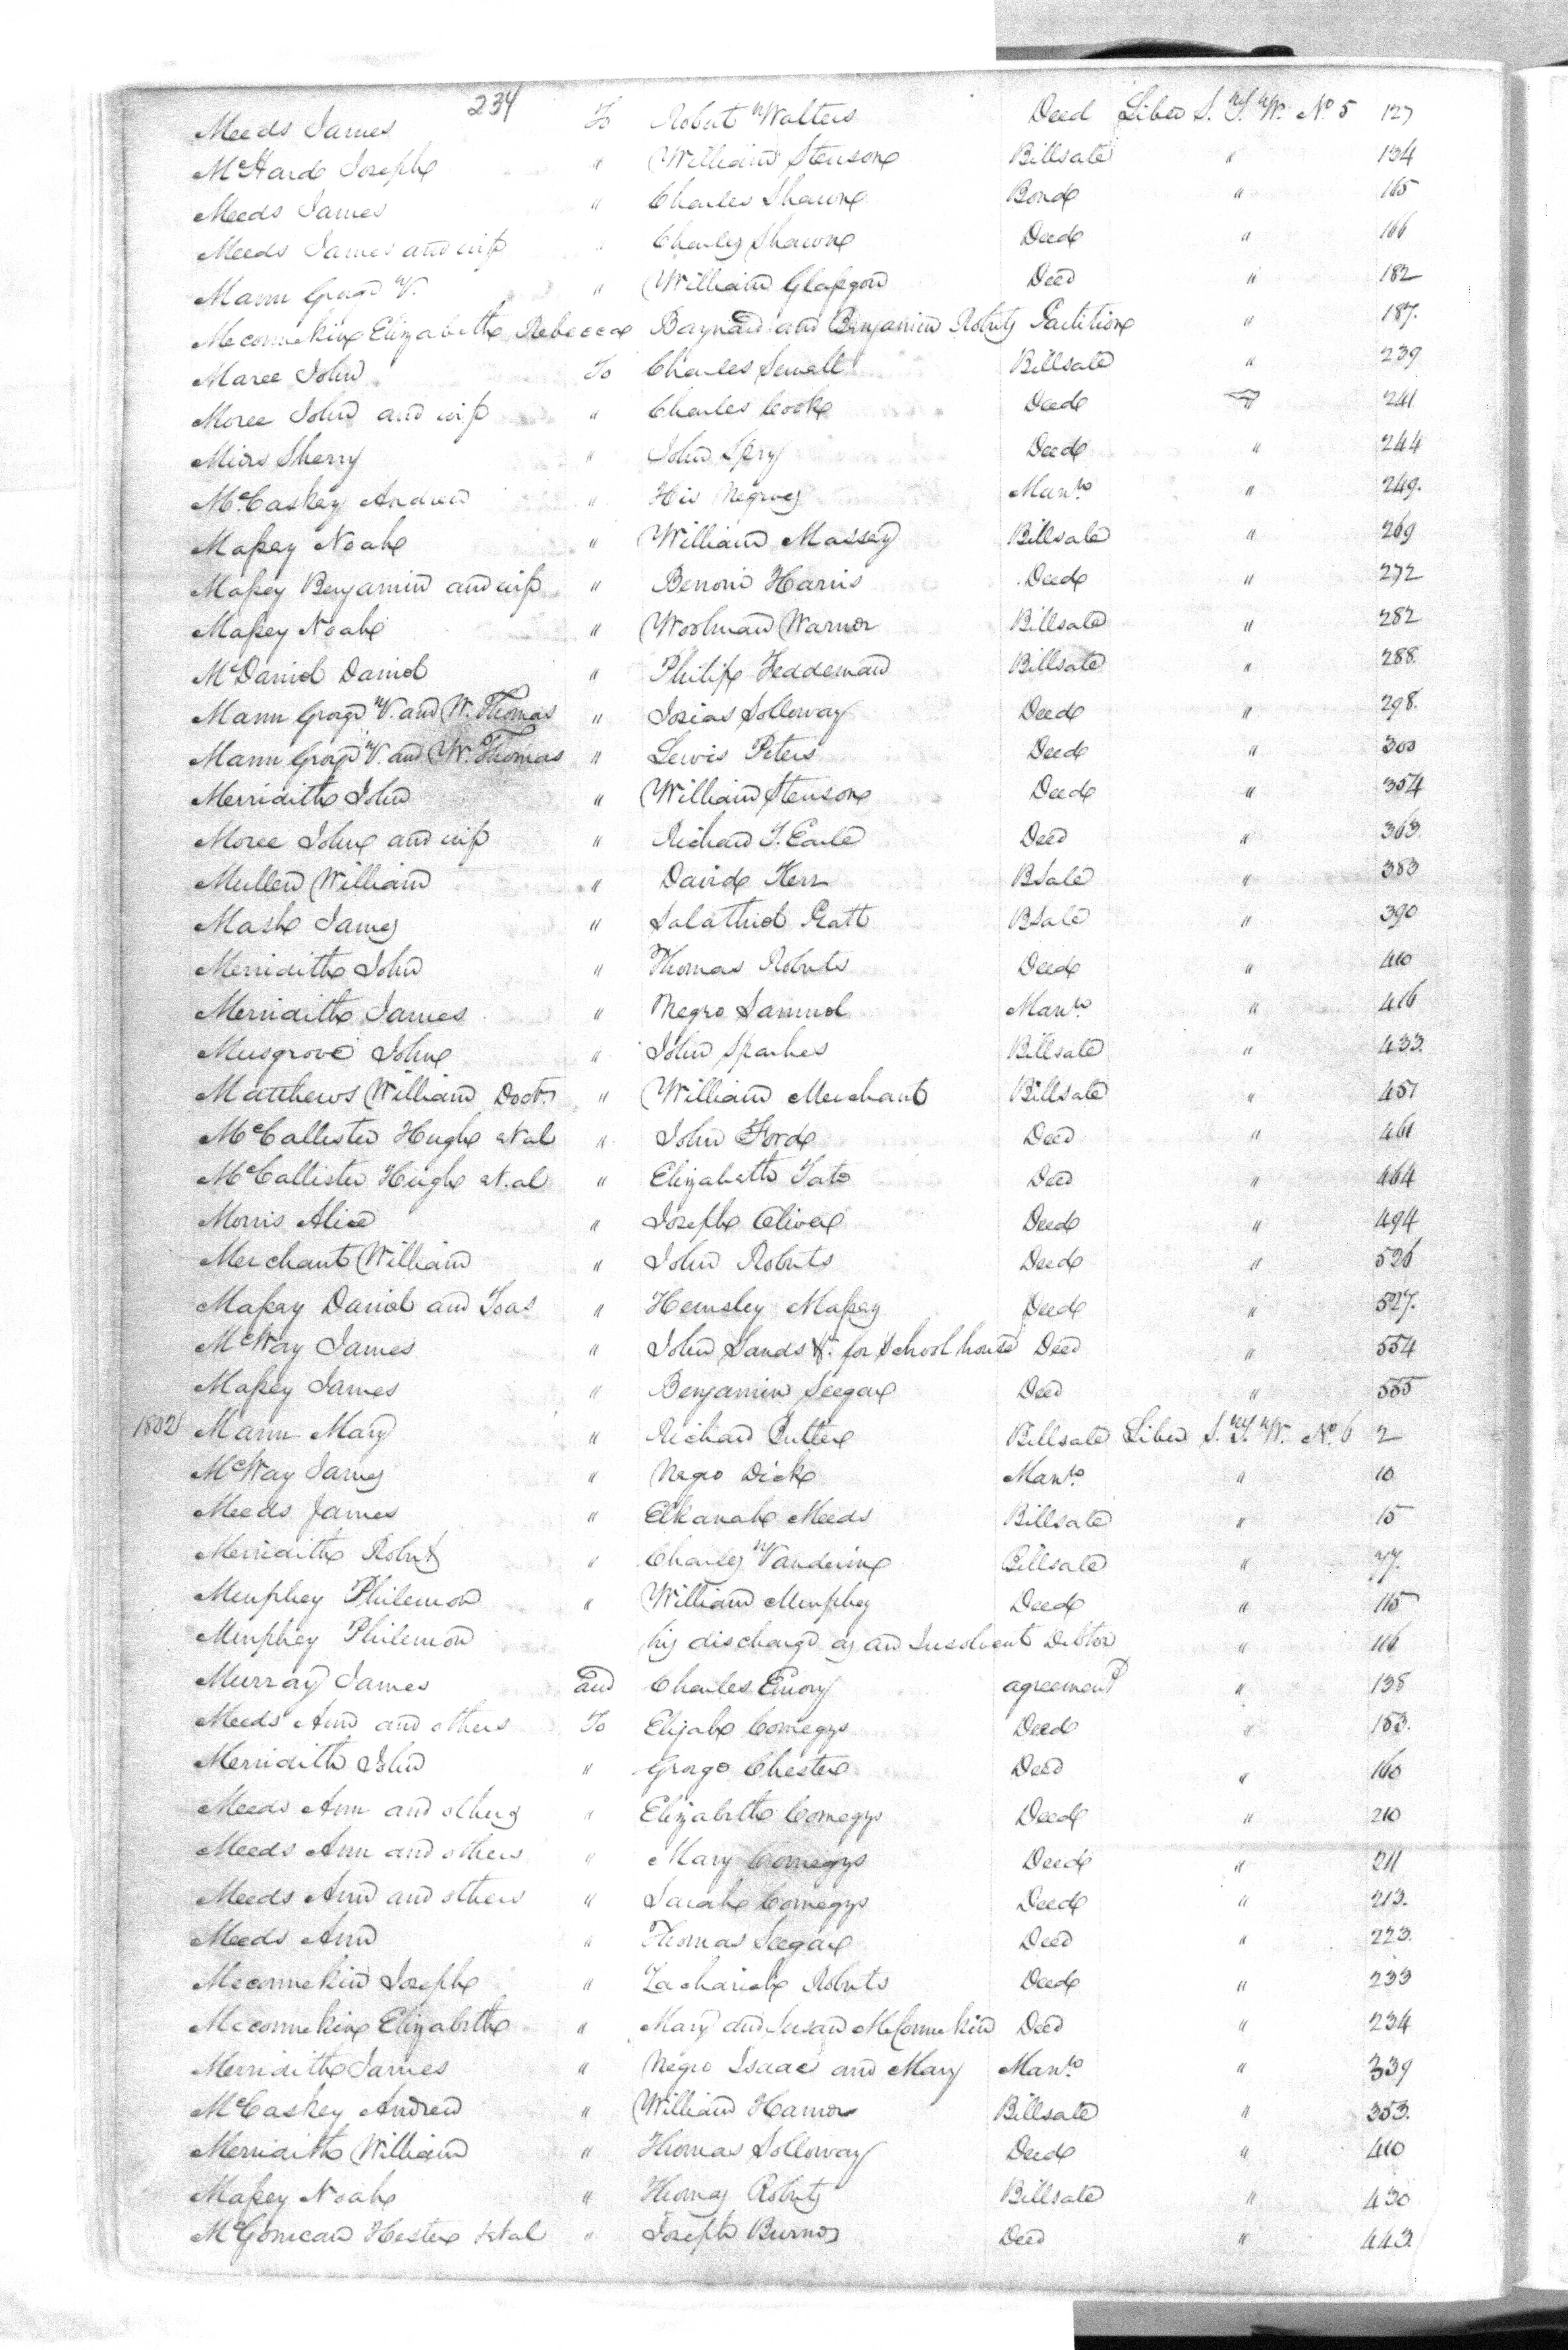 234
Meeds James To Robert Walters Deed Liber S.T.W. No 5 127
McHard Joseph " William Stenson Billsale " 134
Meeds James " Charles Shawn Bond " 165
Meeds James and wife " Charles Shawn Deed " 166
Mann George V. " William Glasgow Deed " 182
Meconnekin Elizabeth Rebecca Baynard and Benjamin Roberts Partition " 187.
Maree John To Charles Sewell Billsale " 239
Moree John and wife " Charles Cook Deed " 241
Miers Sherry " John Spry Deed " 244
McCaskey Andrew " His Negroes Manto " 249.
Massey Noah " William Massey Billsale " 269
Massey Benjamin and wife " Benoni Harris Deed " 272
Massey Noah " Woolman Warner Billsale " 282
McDaniel Daniel " Philip Feddeman Billsale " 288.
Mann George V. and W. Thomas " Josias Solloway Deed " 298.
Mann George V. and W. Thomas " Lewis Peters Deed " 300
Merridith John " William Stenson Deed " 354
Moree John and wife " Richard T. Earle Deed " 363.
Mullen William " David Kerr BSale " 383
Mash James " Salathiel Pratt BSale " 390
Merridith John " Thomas Roberts Deed " 410
Merridith James " Negro Samuel Manto " 416
Musgrove John " John Sparkes Billsale " 433.
Matthews William Doct. " William Merchant Billsale " 457
McCallister Hugh et al " John Ford Deed " 461
McCallister Hugh et. al " Elizabeth Tate Deed " 464
Morris Alice " Joseph Oliver Deed " 494
Merchant William " John Roberts Deed " 526
Massey Daniel and Joas " Hemsley Massey Deed " 527.
McWay James " John Sands &c. for School house Deed " 554
Massey James " Benjamin Seegar Deed " 555
1802 Mann Mary " Richard Butler Billsale Liber S.T.W. No. 6 2
McWay James " Negro Dick Manto " 10
Meeds James " Elkanah Meeds Billsale " 15
Merridith Robert " Charles Vanderine Billsale " 77.
Murphey Philemon " William Murphey Deed " 115
Murphey Philemon his discharge as an Insolvent Debtor " 116
Murray James and Charles Emory agreement " 138
Meeds Ann and others To Elijah Comegys Deed " 153.
Merridith John " George Chester Deed " 160
Meeds Ann and others " Elizabeth Comegys Deed " 210
Meeds Ann and others " Mary Comegys Deed " 211
Meeds Ann and others " Sarah Comegys Deed " 213.
Meeds Ann " Thomas Seegar Deed " 223.
Meconnekin Joseph " Zachariah Roberts Deed " 233
Meconnekin Elizabeth " Mary and Susan McConnekin Deed " 234
Merridith James " Negro Isaac and Mary Manto " 339
McCaskey Andrew " William Hamer Billsale " 353.
Merridith William " Thomas Solloway Deed " 410
Massey Noah " Thomas Roberts Billsale " 430
McGonican Hester et al " Joseph Burns Deed " 443.